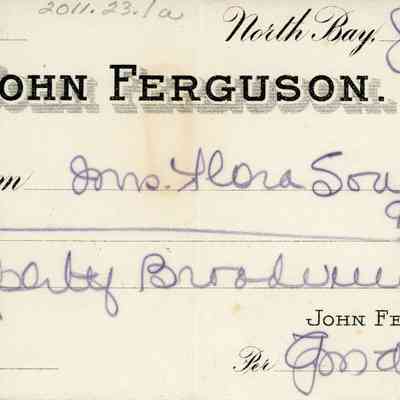 2011.23.1a
North Bay,
OHN FERGUSON.
m Mrs. Flora Sou
perty Broadview
JOHN FE
Per